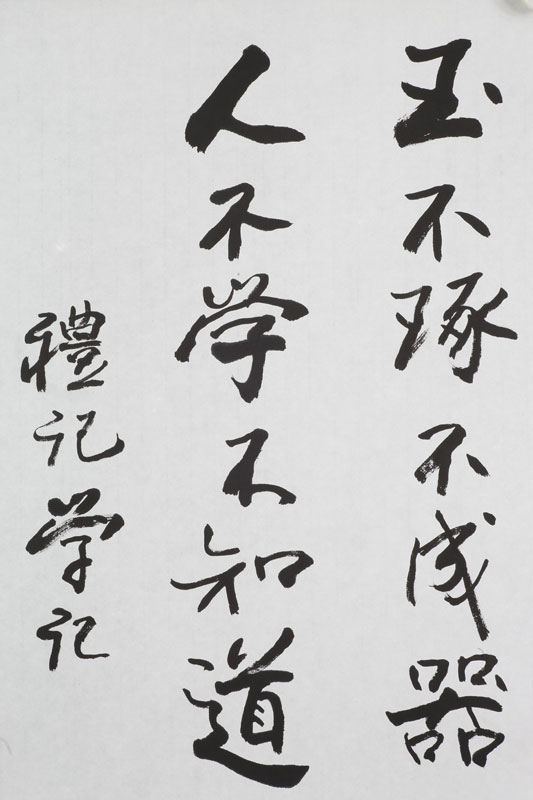 玉不琢不成器
人不学不知道
禮记学记